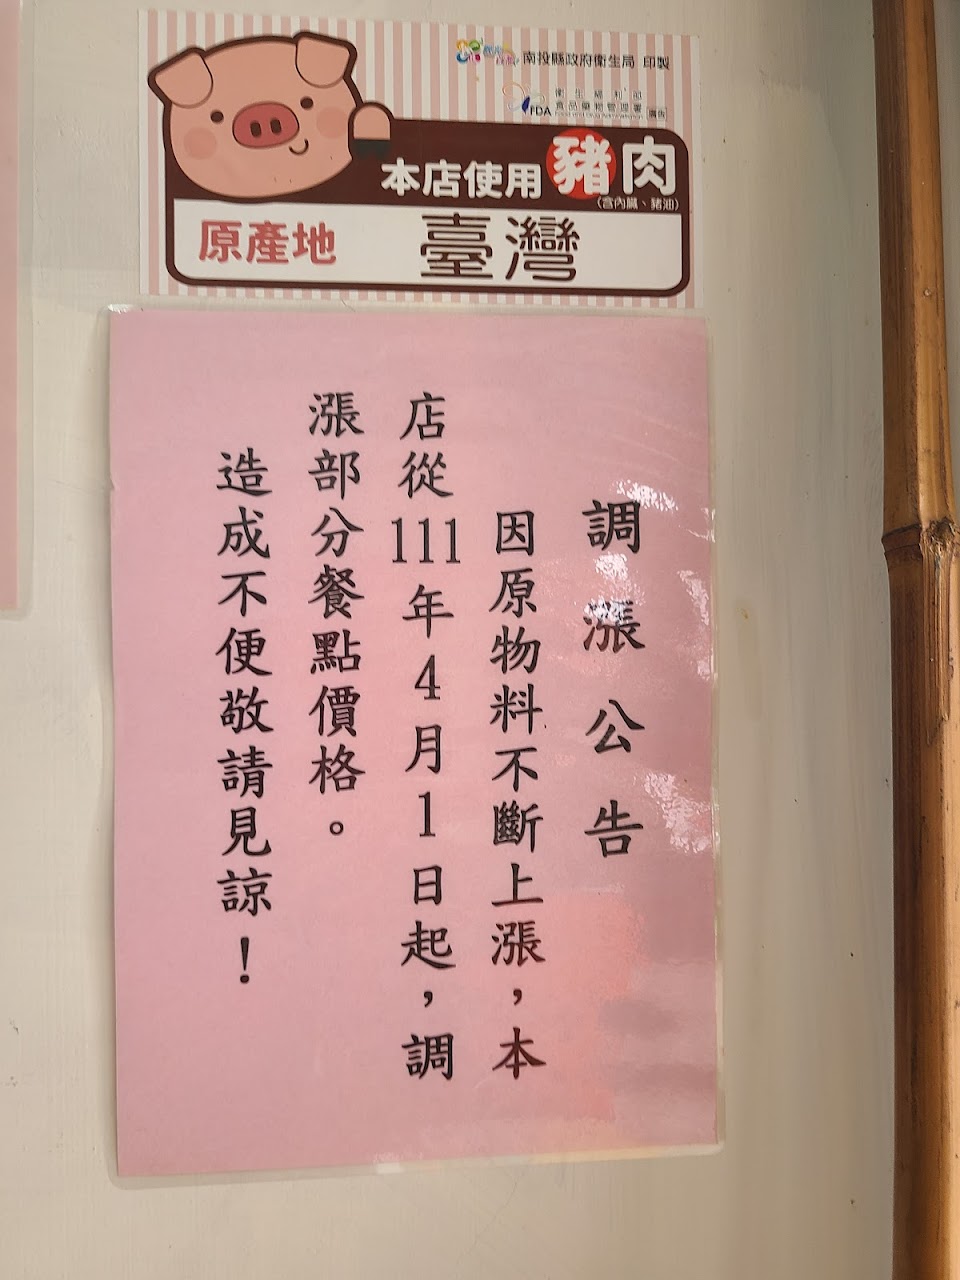 南投縣政府衛生局 印製
衛生福利部
食品藥物管理署
FDA
Food and Drug Administration
廣告
本店使用豬肉
(含內臟、豬油)
原產地 臺灣
調漲公告
因原物料不斷上漲，本
店從111年4月1日起，調
漲部分餐點價格。
造成不便敬請見諒！